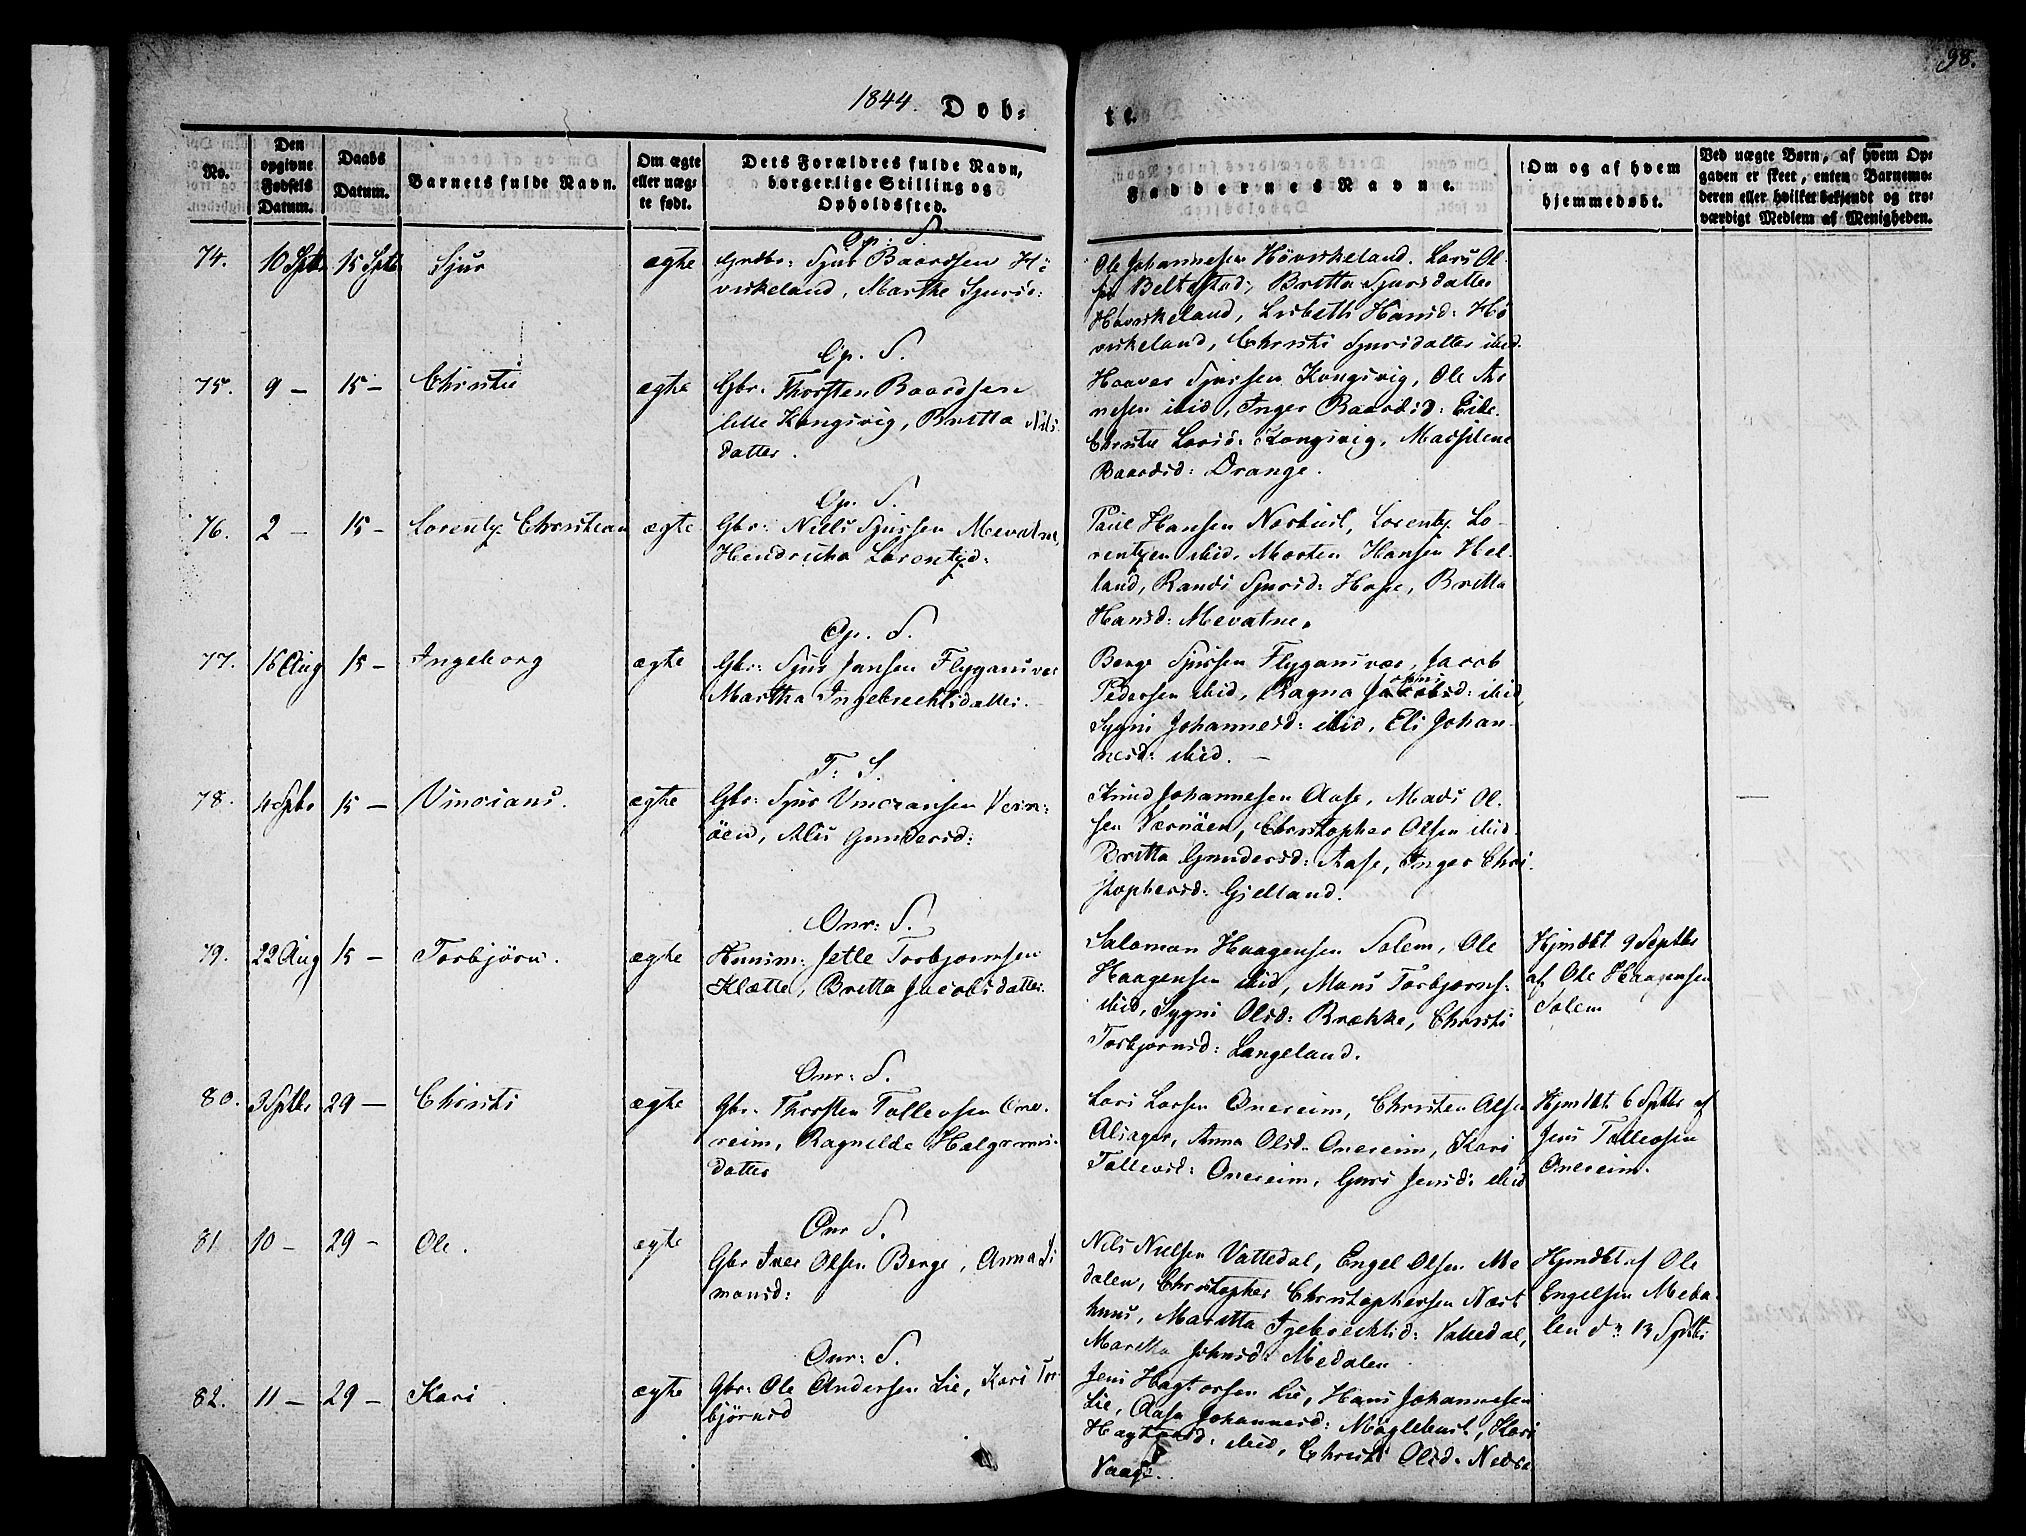 98.
1844. Döb-
te.
No.
Den opgivne Fødsels Datum.
Daabs Datum.
Barnets fulde Navn.
Om ægte eller uægte født.
Dets Forældres fulde Navn, borgerlige Stilling og Opholdssted.
Faddernes Navne.
Om og af hvem hjemmedøbt.
Ved uægte Børn, af hvem Opgaven er skeet, enten Barnemoderen eller hvilket bekjendt og troværdigt Medlem af Menigheden.
Op: S.
74. 10 Sptb 15 Sptb Sjur ægte Grdbr: Sjur Baardsen Hö-
virkeland, Marthe Sjursd:
Ole Johannesen Hövirkeland. Lars Ol-
sen Beltestad, Britta Sjursdatter
Hövirkeland, Lisbeth Hansd: Hö
virkeland, Christi Sjursdatter ibid.
Op. S.
75. 9 – 15 – Christie ægte Gbr: Thorsten Baardsen
lille Kongsvig, Britta Nils
datter.
Haaver Sjursen Kongsvig, Ole Ar-
nesen ibid, Inger Baardsd: Eide.
Christie Larsd: Kongsvig, Madsilene
Baardsd: Drange.
Op. S.
76. 2 – 15 – Lorentz Christian ægte Gbr: Niels Sjursen Mevatne,
Hendricka Lorentzd:
Paul Hansen Norhust, Lorentz Lo-
rentzen ibid, Morten Hansen Hel-
land, Randi Sjursd: Hope, Britta
Hansd: Mevatne.
Op. S.
77. 16 Aug 15 – Ingeborg ægte Gbr: Sjur Jansen Flygansvær
Martha Ingebrechtsdatter.
Berge Sjursen Flygansvær, Jacob
Pedersen ibid, Ragna Jacobsd: ibid,
Sygni Johannesd: ibid, Eli Johan-
nesd: ibid. –
T: S.
78. 4 Sptbr 15 – Vincians. ægte Gbr: Sjur Vinciansen Vern-
öen, Alis Gundersd:
Knud Johannesen Aase, Mads Ol-
sen Vernöen, Christopher Olsen ibid.
Britta Gundersd: Aase, Inger Chri
stophersd: Gjelland.
Onr: S.
79. 22 Aug 15 – Torbjörn. ægte Huusm: Jetle Torbjörnsen
Klætte, Britta Jacobsdatter.
Salomon Haagensen Solem, Ole
Haagensen ibid, Mons Torbjörns:
ibid, Sygni Olsd: Brække, Christi
Torbjörnsd: Langeland.
Hjmdbt 9 Septbr
af Ole Haagensen
Solem
Onr: S.
80. 3 Sptbr 29 – Christi ægte Gbr: Thorsten Tollevsen One-
reim, Ragnilde Halgrims-
datter
Lars Larsen Onereim, Christen Olsen
Alsager, Anna Olsd: Onereim, Kari
Tollevsd: Onereim, Guri Jensd: ibid
Hjmdbt 6 Sptbr af
Jens Tollevsen
Onereim.
Onr S.
81 10 – 29 – Ole. ægte Gbr Iver Olsen Berge, Anna Si
monsd:
Nils Nielsen Vattedal, Engel Olsen Me
dalen, Christopher Christophersen Næst
huus, Maritta Igebrechtsd: Vattedal,
Maritha Johnsd: Medalen.
Hjmdbt af Ole
Engelsen Meda-
len d: 13 Sptbr
Onr: S.
82. 11 – 29 – Kari. ægte Gbr: Ole Andersen Lie, Kari Tor-
björnsd
Jens Hagtorsen Lie, Hans Johannesen
Lie, Aase Johannesd: Möglehust, Kari
Hagtorsd: ibid, Christi Olsd: Nedre
Vaage.